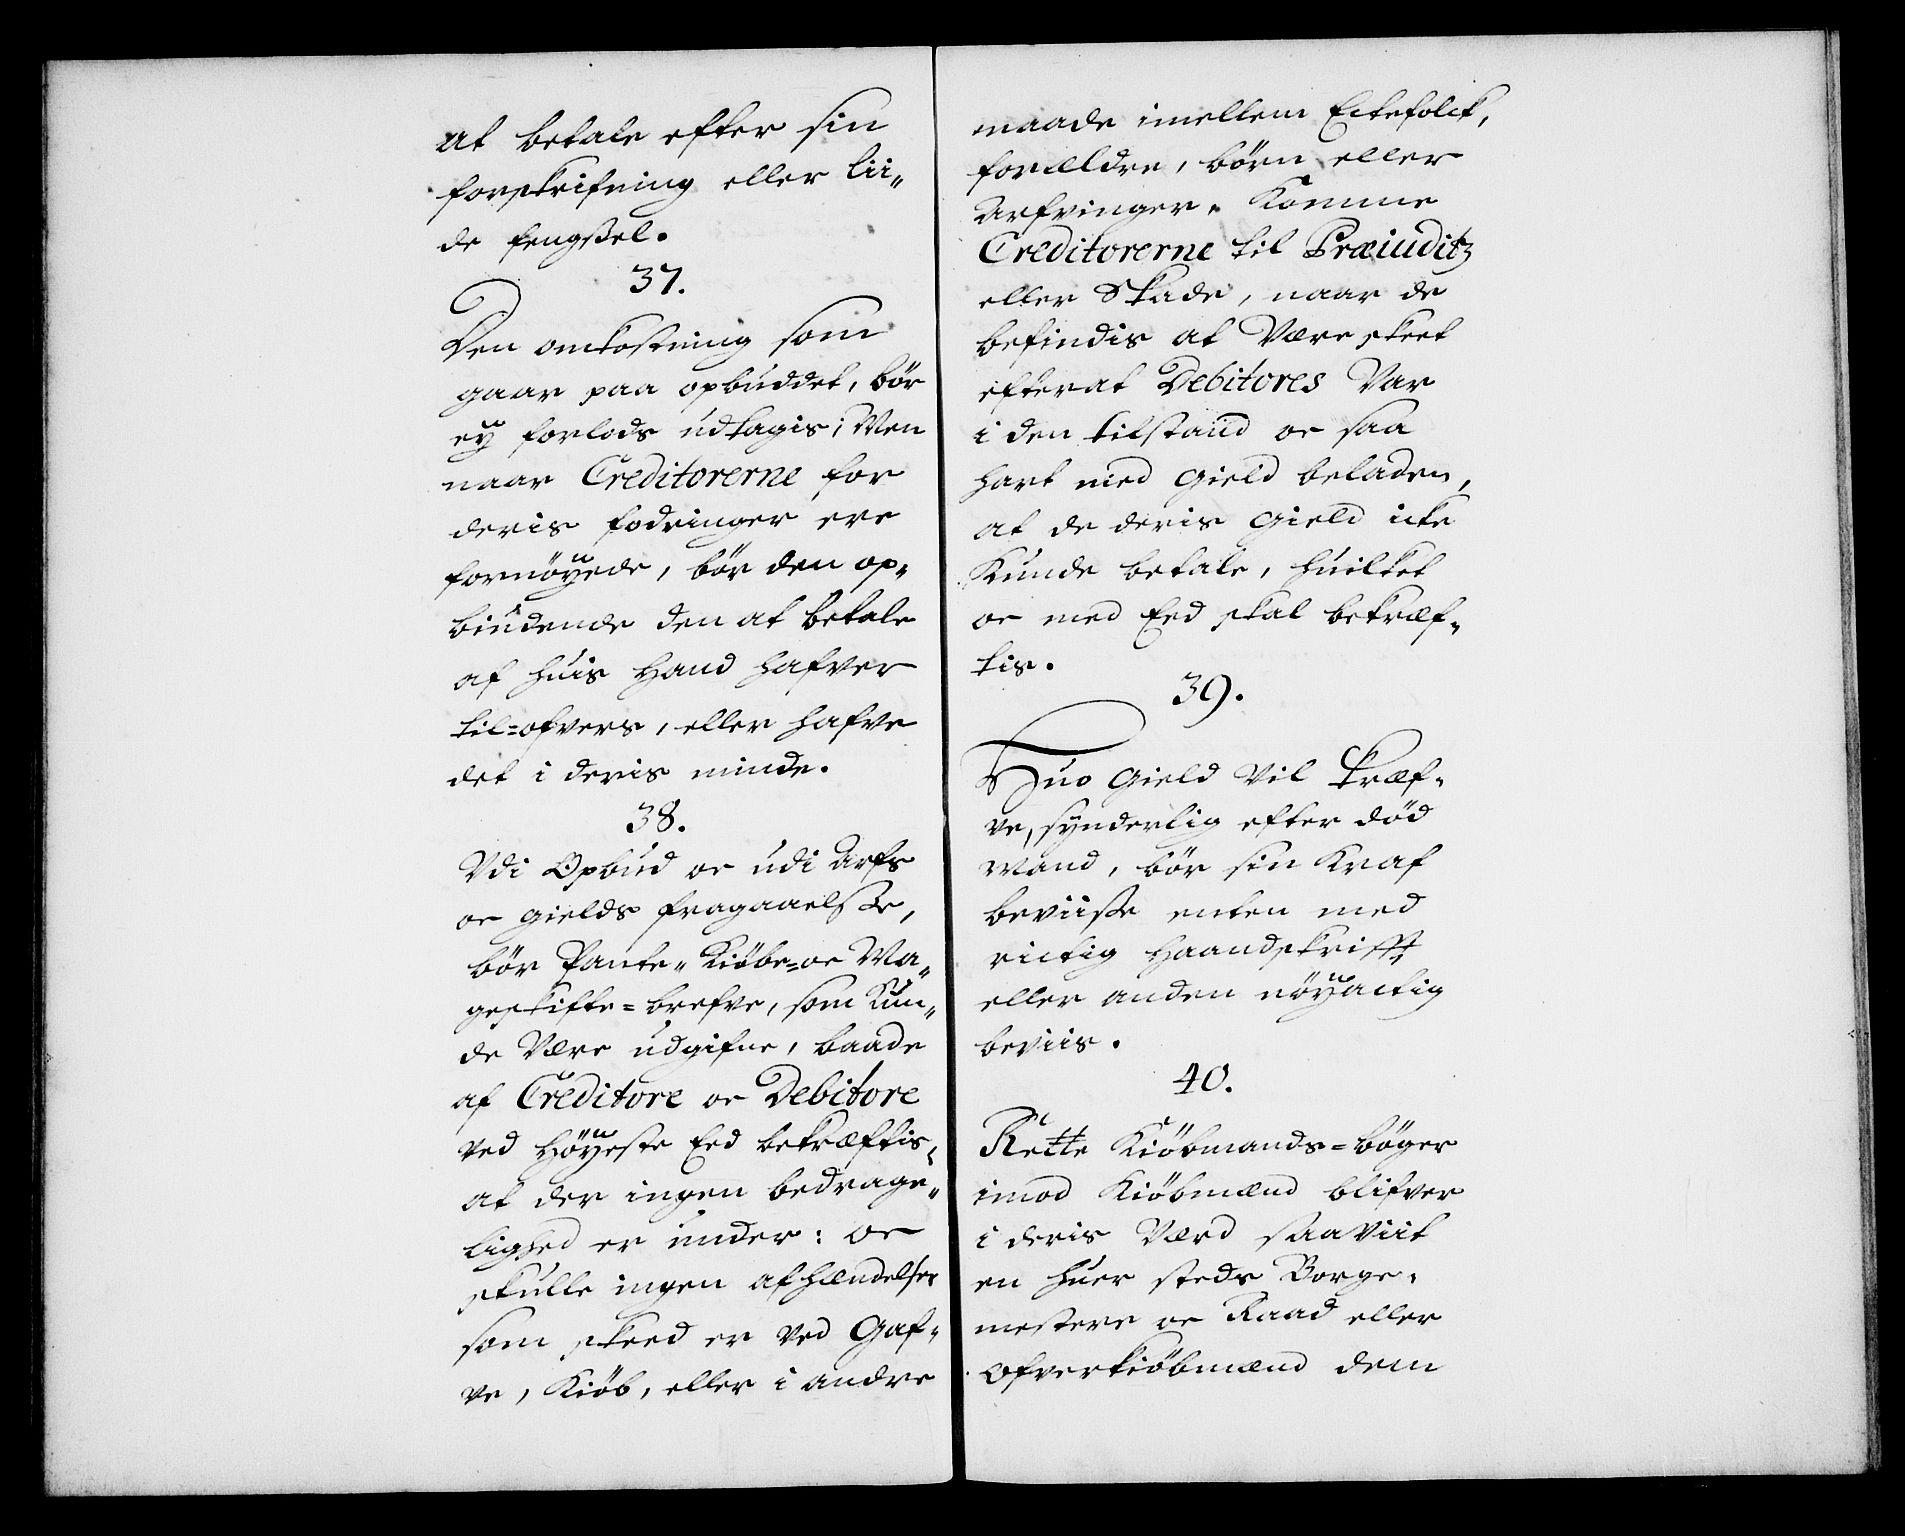 at betale efter sin
forskrifning eller lii„
de fengßel.
37.
Den omkostning som
gaar paa opbuddet, bør
eÿ forlods udtagis; Men
naar Creditorerne for
deris fodringer ere
fornöÿede, bör den op„
biudende den at betale
af huis hand hafver
til=ofvers, eller hafve
det i deris minde.
38.
Vdi Opbud oc udi Arfs
oc gields fragaaelße,
bör Pante„ Kiöbe=oc Ma„
geskifte=brefve, som kun„
de være udgifne, baade
af Creditore oc Debitore
ved höÿeste Eed bekræftis„
at der ingen bedrage„
lighed er under: oc
skulle ingen afhændelser
som skeed er ved Gaf„
ve, Kiöb, eller i andre
maade imellem Ectefolck,
forældre, börn eller
Arfvinger„ Komme
Creditorerne til Præiuditz
eller Skade, naar de
befindis at være skeet
efterat Debitores var
i den tilstand oc saa
hart med gield beladen,
at de deris gield icke
kunde betale, huilket
oc med Eed skal bekræf„
tis.
39.
Huo gield vil kræf„
ve, synderlig efter död
Mand, bör sin Kraf
beviiße enten med
rictig haandskrifft
eller anden nöÿactig
beviis.
40.
Rette Kiöbmands=böger
imod Kiöbmænd blifver
i deris værd saaviit
en huer steds Borge„
mestere oc Raad eller
Ofverkiöbmænd dem